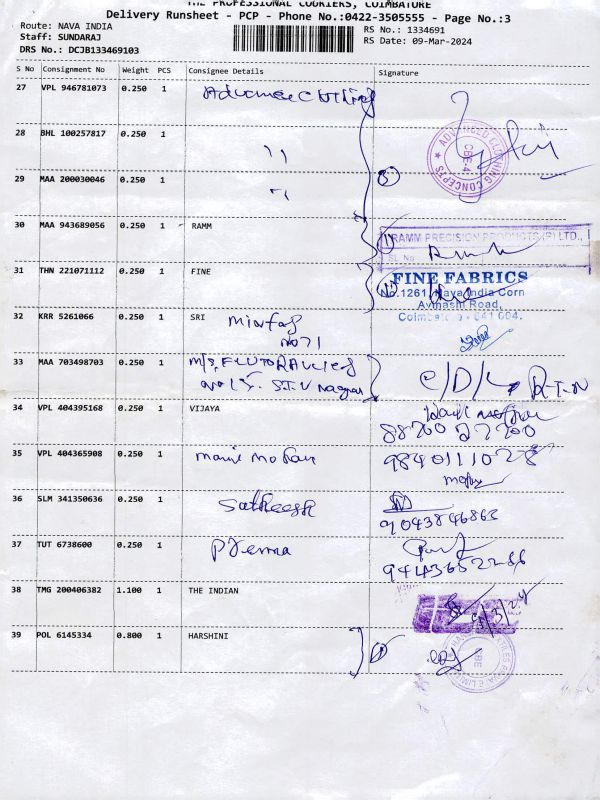 THE PROFESSIONAL COURIERS, COIMBATORE
Delivery Runsheet - PCP - Phone No.:0422-3505555 - Page No.:3
Route: NAVA INDIA
RS No.: 1334691
Staff: SUNDARAJ
RS Date: 09-Mar-2024
DRS No.: DCJB133469103
S No Consignment No Weight PCS Consignee Details Signature
27 VPL 946781073 0.250 1
28 BHL 100257817 0.250 1 ''
ADVANCED CLOTHING CONCEPTS
CBE-4
29 MAA 200030046 0.250 1 '' 3
30 MAA 943689056 0.250 1 RAMM
1 RAMM PRECISION PRODUCTS (P) LTD.,
SL No
31 THN 221071112 0.250 1 FINE
FINE FABRICS
No.1261, Naya India Corn
Avinashi Road,
Coimbatore - 641 004.
32 KRR 5261066 0.250 1 SRI
NO 71
33 MAA 703498703 0.250 1 M/S
S.I.U Nagar
C/D/L R-T-N
34 VPL 404395168 0.250 1 VIJAYA
88700 27700
35 VPL 404365908 0.250 1 mani mohan 9840111028
36 SLM 341350636 0.250 1 Satheesh
9043846863
37 TUT 6738600 0.250 1 Prema
38 TMG 200406382 1.100 1 THE INDIAN
9/3/24
39 POL 6145334 0.800 1 HARSHINI